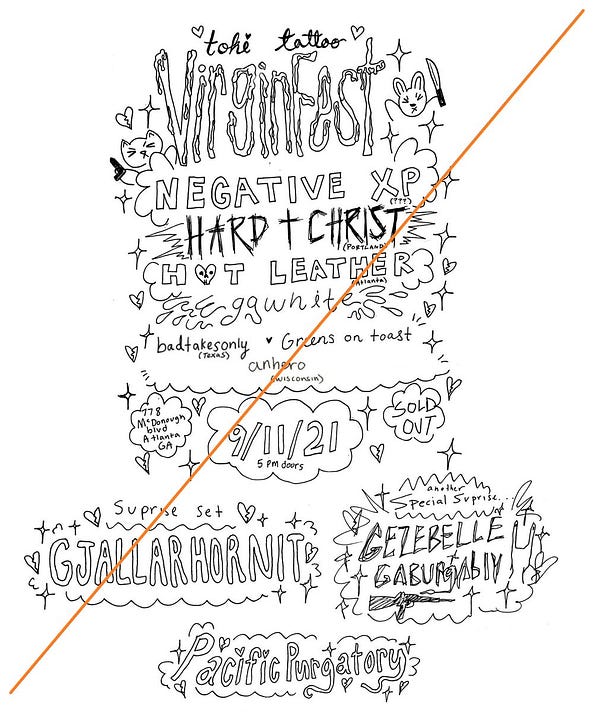 tohi tattoo
VirginFest
NEGATIVE XP
(???)
HARD + CHRIST
(PORTLAND)
HOT LEATHER
(Atlanta)
eggwhite
badtakesonly
(TEXAS)
Greens on toast
anhero
(wisconsin)
778
McDonough
blvd
Atlanta
GA
9/11/21
5 pm doors
SOLD
OUT
Suprise set
GJALLARHORNIT
another
Special Suprise...
GEZEBELLE
GABURGABLY
Pacific Purgatory